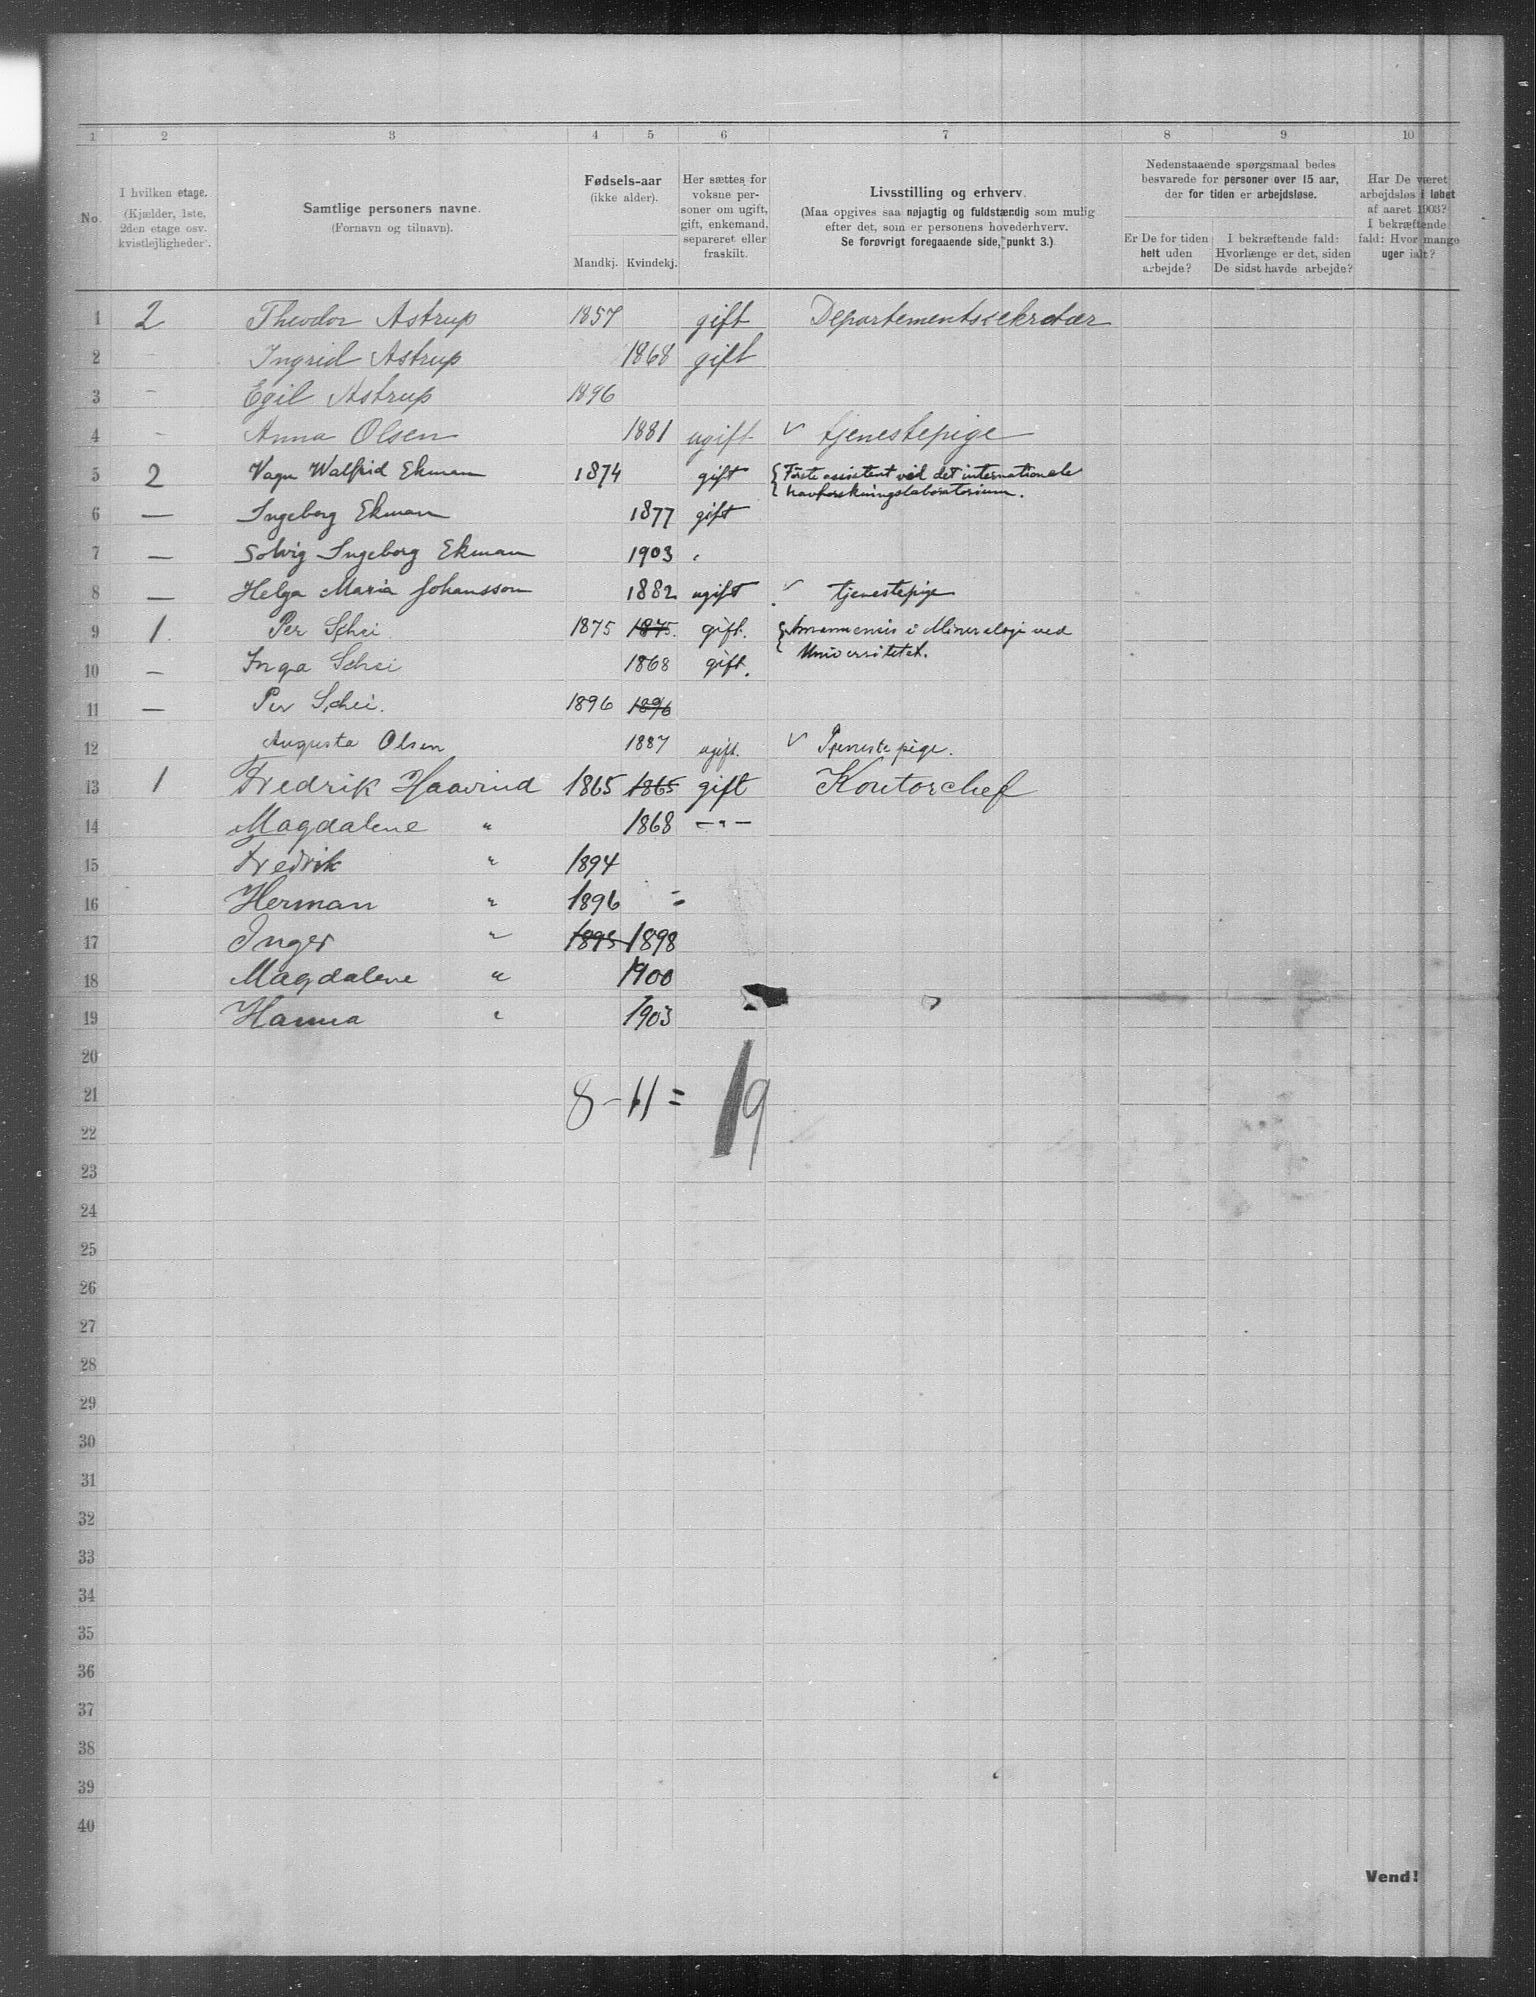 1 2 3 4 5 6 7 8 9 10
No.
I hvilken etage.
(Kjælder, 1ste,
2den etage osv.
kvistlejligheder).
Samtlige personers navne.
(Fornavn og tilnavn).
Fødsels-aar
(ikke alder).
Mandkj. Kvindekj.
Her sættes for
voksne per-
soner om ugift,
gift, enkemand,
separeret eller
fraskilt.
Livsstilling og erhverv.
(Maa opgives saa nøjagtig og fuldstændig som mulig
efter det, som er personens hovederhverv.
Se forøvrigt foregaaende side, punkt 3.)
Nedenstaaende spørgsmaal bedes
besvarede for personer over 15 aar,
der for tiden er arbejdsløse.
Er De for tiden
helt uden
arbejde?
I bekræftende fald:
Hvorlænge er det, siden
De sidst havde arbejde?
Har De været
arbejdsløs i løbet
af aaret 1903?
I bekræftende
fald: Hvor mange
uger ialt?
1 2 Theodor Astrup 1857 gift Departementssekretær
2 - Ingrid Astrup 1868 gift
3 - Egil Astrup 1896
4 - Anna Olsen 1881 ugift v tjenestepige
5 2 Vagn Walfrid Ekman 1874 gift { Förste assistent ved det internationale
havforskningslaboratorium.
6 — Ingeborg Ekman 1877 gift
7 — Solvig Ingeborg Ekman 1903 .
8 — Helga Maria Johansson 1882 ugift v tjenestepige
9 1. Per Schei 1875 1875. gift. { Amanuensis i Mineralogi ved
Universitetet.
10 — Inga Schei 1868 gift.
11 — Per Schei. 1896 1896
12 Augusta Olsen 1887 ugift. v Tjenestepige.
13 1 Fredrik Haavind 1865 1865 gift Kontorchef
14 Magdalene " 1868 —"—
15 Fredrik " 1894
16 Herman " 1896
17 Inger " 1898
18 Magdalene " 1900
19 Hanna " 1903
20
21 8 - 11 = 19
22
23
24
25
26
27
28
29
30
31
32
33
34
35
36
37
38
39
40
Vend!